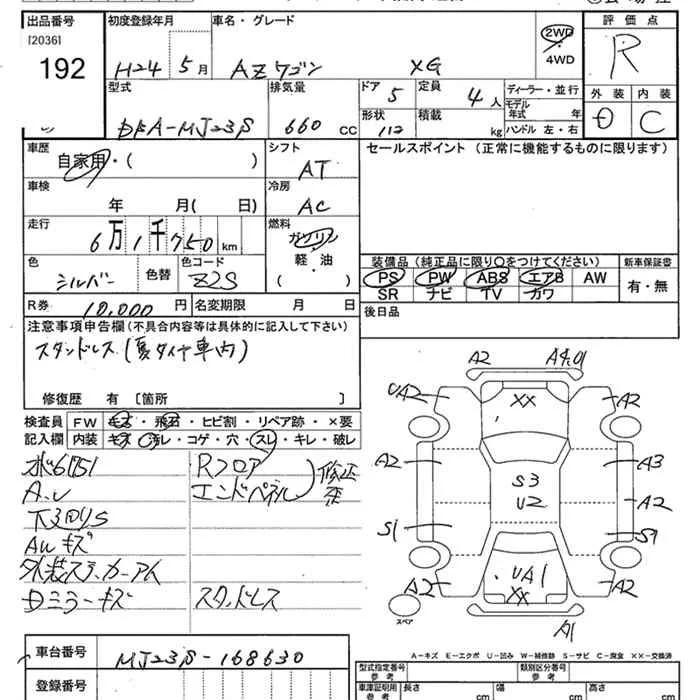 出品番号
[2036]
192
初度登録年月
H24 5月
車名・グレード
AZワゴン XG
2WD
4WD
評価点
R
型式
DBA-MJ23S
排気量
660 CC
ドア
5
定員
4人
形状
112
積載
kg
ディーラー・並行
モデル年式 年
ハンドル 左・右
外装
内装
C
車歴
自家用・( )
シフト
AT
車検
年 月( 日)
冷房
AC
走行
6万1千750km
燃料
ガソリン
軽・油
( )
色
シルバー
色替
色コード
Z2S
R券
10,000円
名変期限 月 日
セールスポイント (正常に機能するものに限ります)
装備品(純正品に限り○をつけてください)
PS PW ABS エアB AW
SR ナビ TV カワ
新車保証書
有・無
後日品
注意事項申告欄(不具合内容等は具体的に記入して下さい)
スタッドレス(夏タイヤ車内)
修復歴 有〔箇所 〕
検査員
記入欄
FW 毛キズ・飛石・ヒビ割・リペア跡・×要
内装 キズ・汚レ・コゲ・穴・スレ・キレ・破レ
Rフロア
エンドペネル
修正
歪
A.U
下回りS
AWキズ
Dミラーキズ
スタッドレス
A2
A4.01
UA2
XX
A2
A2
A3
S3
U2
A2
S1
S1
A2
UA1
XX
A2
スペア
A1
A-キズ E-エクボ U-凹み W-補修跡 S-サビ C-腐食 XX-交換済
車台番号
MJ23S-168630
登録番号
型式指定番号
参考
類別区分番号
参考
車庫証明用
参考
長さ cm
幅 cm
高さ cm